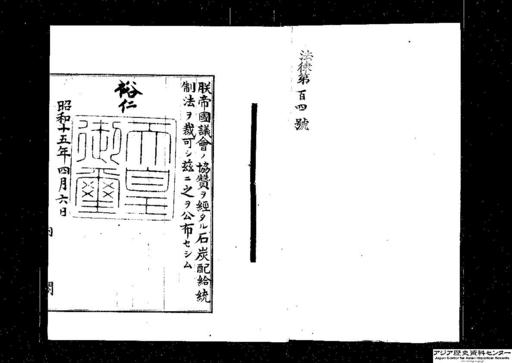 法律第百四號
朕帝國議會ノ協贊ヲ經タル石炭配給統
制法ヲ裁可シ玆ニ之ヲ公布セシム
裕仁
天皇
御璽
昭和十五年四月六日
内閣
アジア歴史資料センター
Japan Center for Asian Historical Records